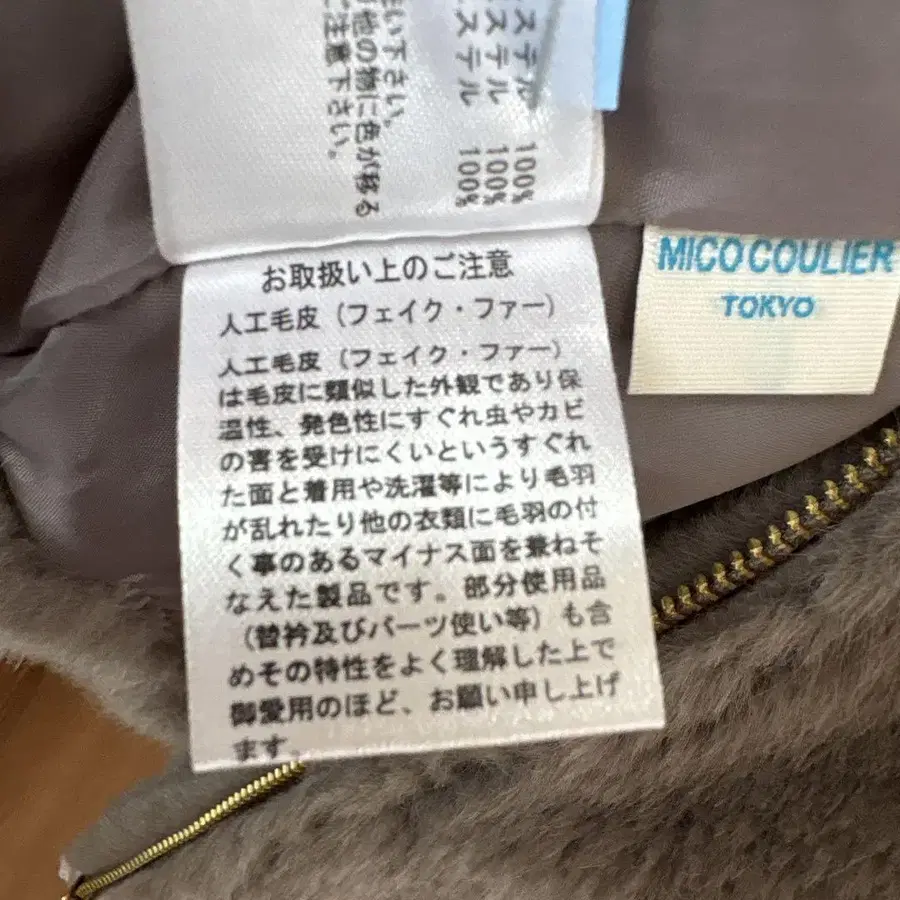 い下さい。
他の物に色が移る
ご注意下さい。
ステル 100%
ステル 100%
ステル 100%
お取扱い上のご注意
人工毛皮（フェイク・ファー）
人工毛皮（フェイク・ファー）
は毛皮に類似した外観であり保
温性、発色性にすぐれ虫やカビ
の害を受けにくいというすぐれ
た面と着用や洗濯等により毛羽
が乱れたり他の衣類に毛羽の付
く事のあるマイナス面を兼ねそ
なえた製品です。部分使用品
（替衿及びパーツ使い等）も含
めその特性をよく理解した上で
御愛用のほど、お願い申し上げ
ます。
MICO COULIER
TOKYO